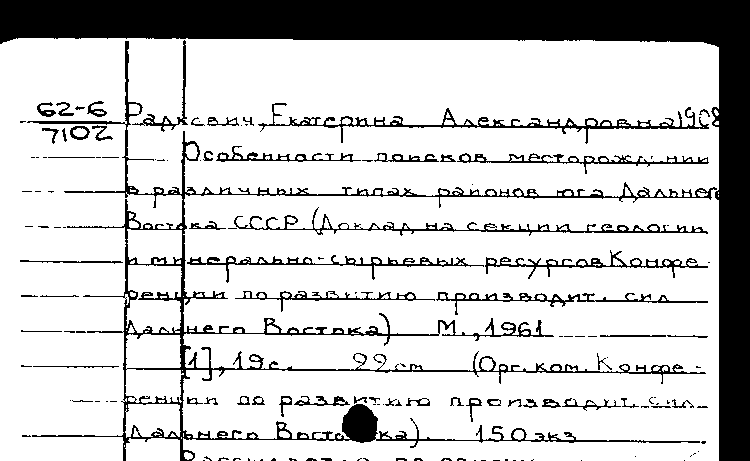 62-6
7102
Радкевич, Екатерина Александровна 1908
Особенности поисков месторождении
в различных типах районов юга Дальнего
Востока СССР (Доклад на секции геологии
и минерально-сырьевых ресурсов Конфе-
ренции по развитию производит. сил
Дальнего Востока) М., 1961
[1], 19 с. 22 cm (Орг. ком. Конфе-
ренции по развитию производит. сил
Дальнего Востока). 150 экз